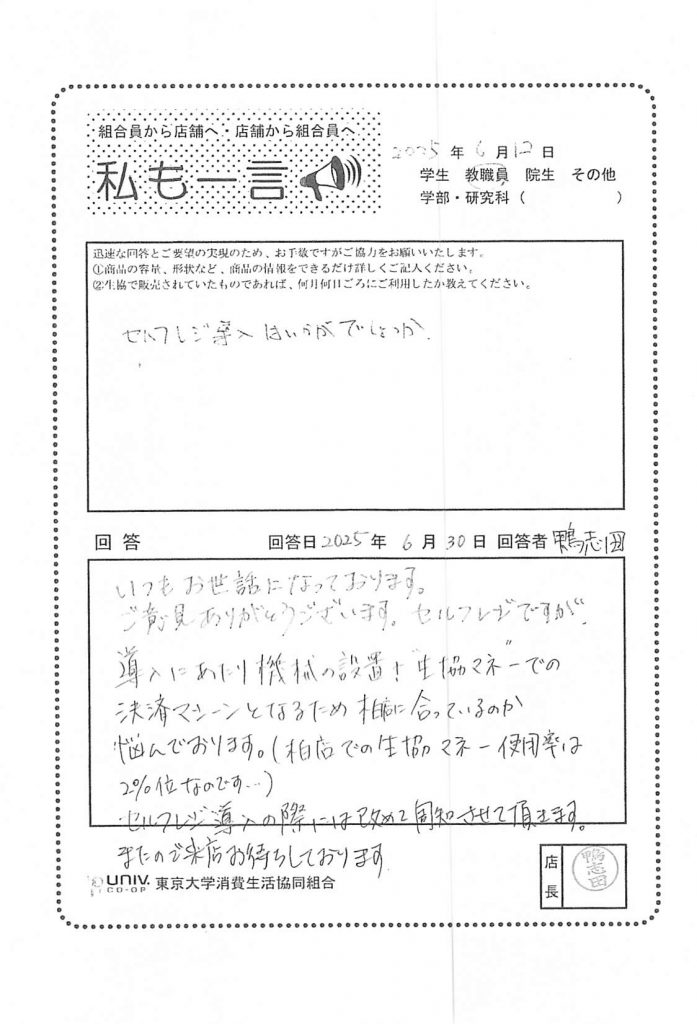 組合員から店舗へ・店舗から組合員へ
私も一言
2025年6月12日
学生 教職員 院生 その他
学部・研究科（　　　　　）
迅速な回答とご要望の実現のため、お手数ですがご協力をお願いいたします。
①商品の容量、形状など、商品の情報をできるだけ詳しくご記入ください。
②生協で販売されていたものであれば、何月何日ごろにご利用したか教えてください。
セルフレジ導入はいかがでしょうか.
回答 回答日2025年6月30日 回答者 鴨志田
いつもお世話になっております。
ご意見ありがとうございます。セルフレジですが、
導入にあたり機械の設置！"生協マネ"ーでの
決済マシーンとなるため柏店に合っているのか
悩んでおります。(柏店での生協マネー使用率は
2%位なのです…)
セルフレジ導入の際には改めて周知させて頂きます。
またのご来店お待ちしております
UNIV. CO-OP 東京大学消費生活協同組合
店長 鴨志田